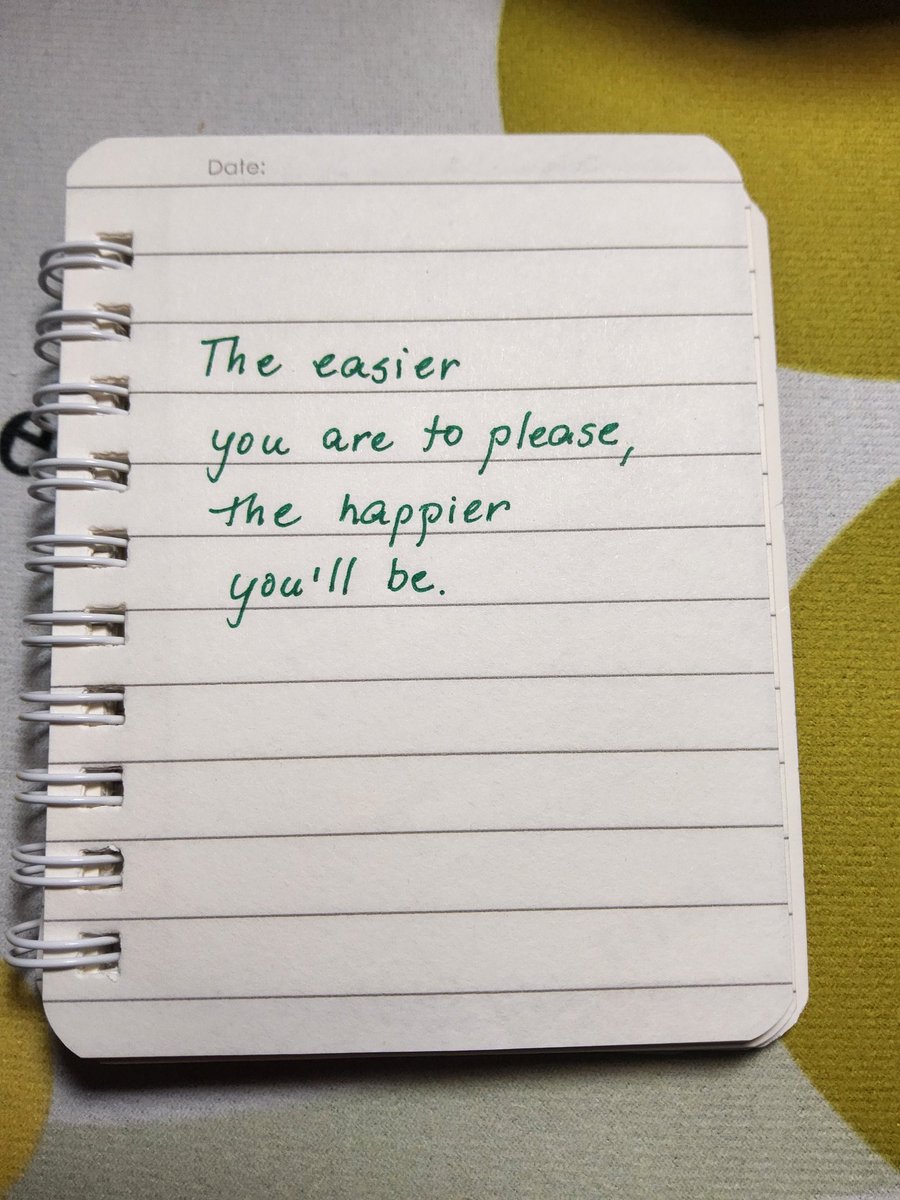 Date:
The easier
you are to please,
the happier
you'll be.